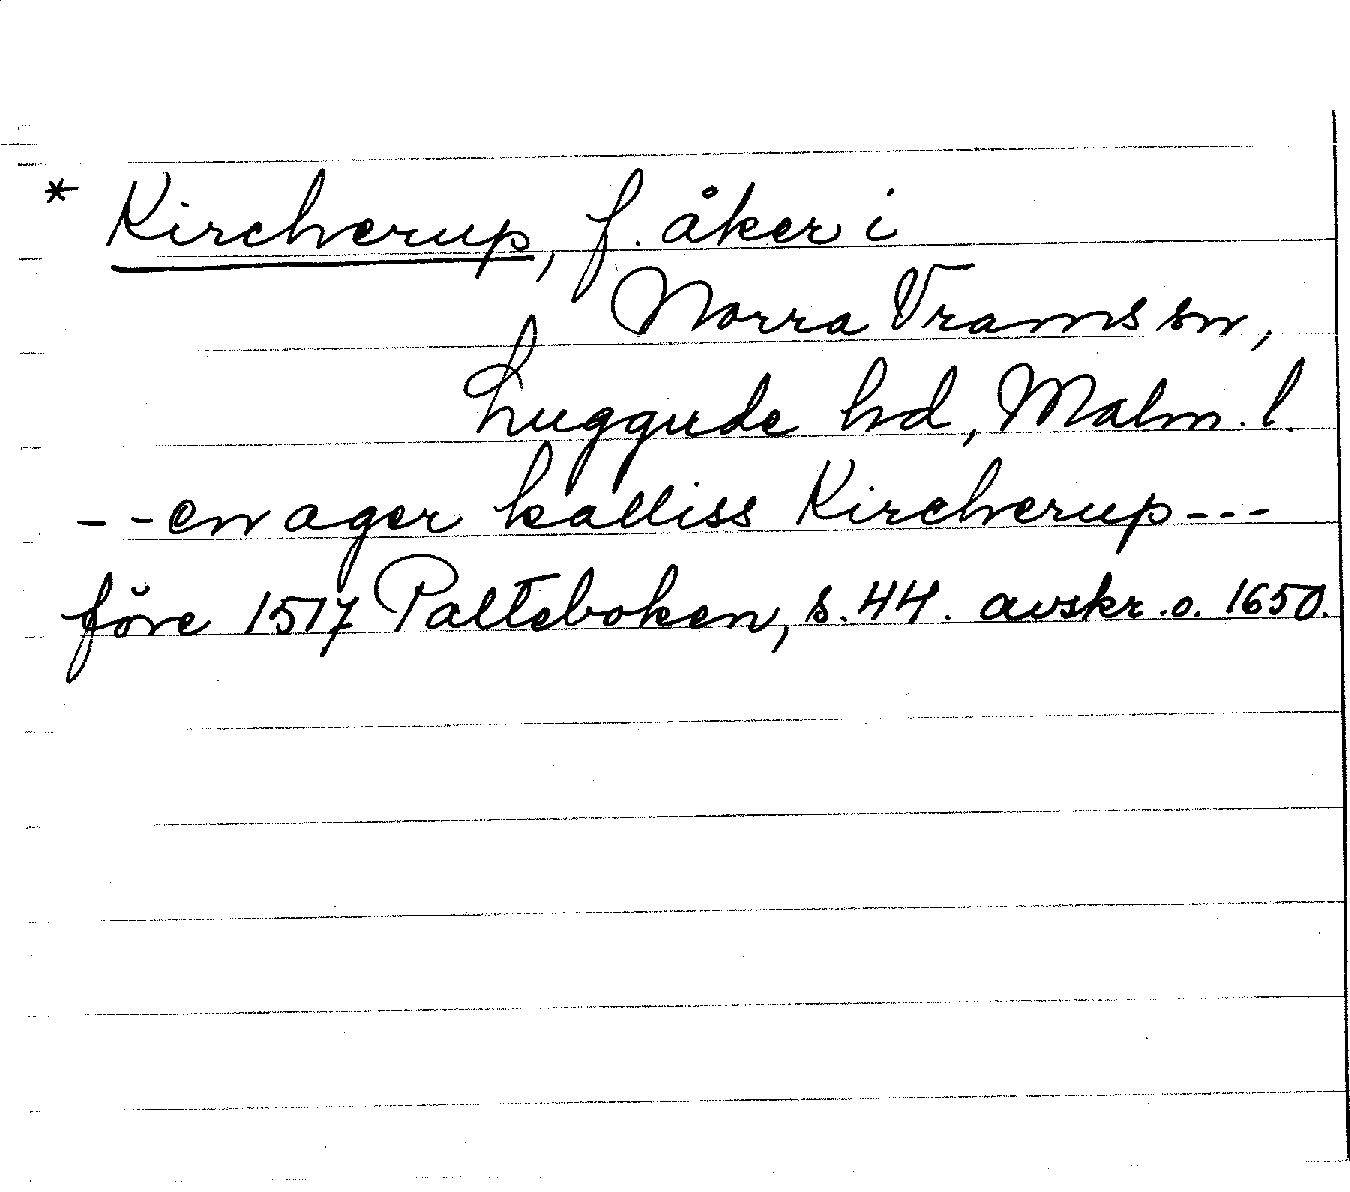 * Kircherup, f. åker i
Norra Vrams sn,
Luggude hd, Malm. l.
--en ager kalliss Kircherup---
före 1517 Palteboken, s. 44. avskr. o. 1650.